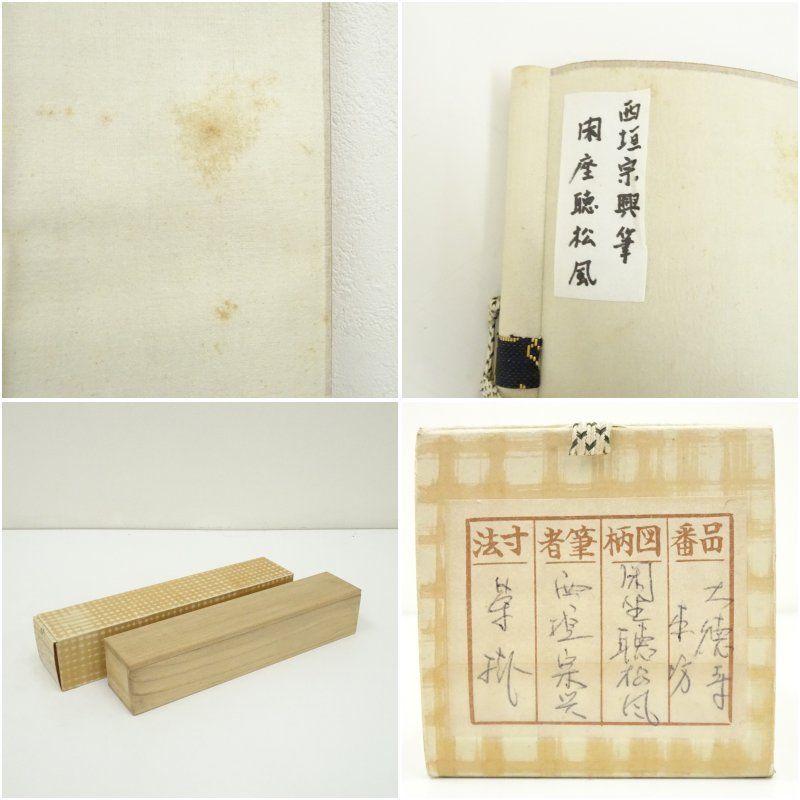 西垣宗興筆
閑座聴松風
品番
図柄
筆者
寸法
大徳寺
閑坐聴松風
西垣宗興
茶掛